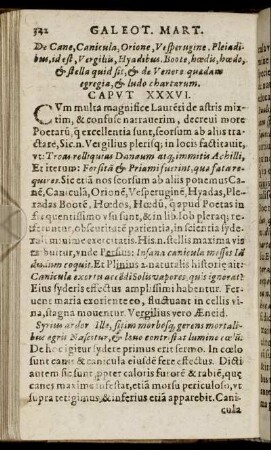 342 GALEOT. MART.
De Cane, Canicula, Orione, Vesperugine, Pleiadi-
bus, id est, Vergiliis, Hyadibus, Boote, hœdis, hœdo,
& stella quid sit, & de Venere quædam
egregia, & ludo chartarum.
CAPVT XXXVI.
CVm multa magnifice Laurēti de astris mix-
tim, & confuse narrauerim, decreui more
Poetarū, q̄ excellentia sunt, seorsum ab aliis trac-
tare, Sic.n. Vergilius plerisq; in locis factitauit,
vt: Troas relliquias Danaum atq; immitis Achilli,
Et iterum: Forsitā & Priami fuerint, qua fata re-
quires. Sic etiā nos seorsum ab aliis ponemus Ca-
nē, Caniculā, Orionē, Vesperuginē, Hyadas, Ple-
radas Bootē, Hœdos, Hœdū, q̄ apud Poetas in
frequentissimo vsu sunt, & in lib. ob pleraq;
obscuritate patientia, in scientia syderali
minime exercitatis. His.n. stellis maxima vis
tribuitur, vnde Persius: Insana canicula messes Iā
dudum coquit. Et Plinius 2. naturalis historiæ ait:
Caniculæ exortu accēdi Solis vapores, quis ignorat?
Eius syderis effectus amplissimi habentur. Feruent
maria exoriente eo, fluctuant in cellis vi-
na, stagna mouentur. Vergilius vero Æneid.
Syrius ardor Ille, sitim morbosq; gerens mortali-
bus ægris Nascitur, & læuo contristat lumine cœlū.
De hoc igitur sydere primus erit sermo. In cœlo
sunt canes & canicula eiusdē fere effectus. Dicti
autem sic sunt, ppter caloris furorē & rabiē, quę
canes maxime infestat, etiā morsu periculoso, vt
supra tetigimus, & inferius etiā apparebit. Cani-
cula